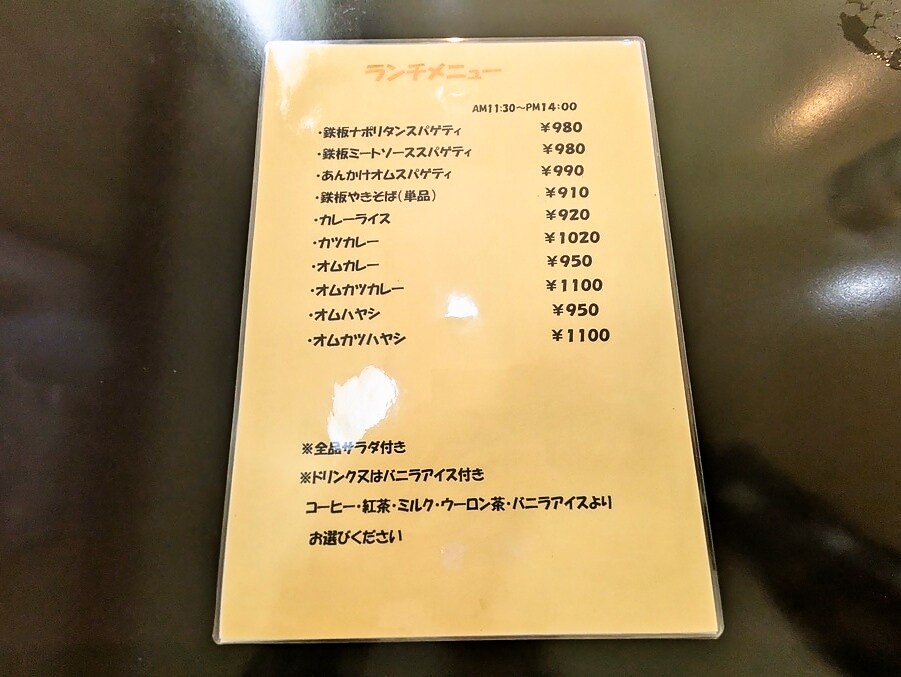 ランチメニュー
AM11:30～PM14:00
・鉄板ナポリタンスパゲティ ￥980
・鉄板ミートソーススパゲティ ￥980
・あんかけオムスパゲティ ￥990
・鉄板やきそば(単品) ￥910
・カレーライス ￥920
・カツカレー ￥1020
・オムカレー ￥950
・オムカツカレー ￥1100
・オムハヤシ ￥950
・オムカツハヤシ ￥1100
※全品サラダ付き
※ドリンク又はバニラアイス付き
コーヒー・紅茶・ミルク・ウーロン茶・バニラアイスより
お選びください